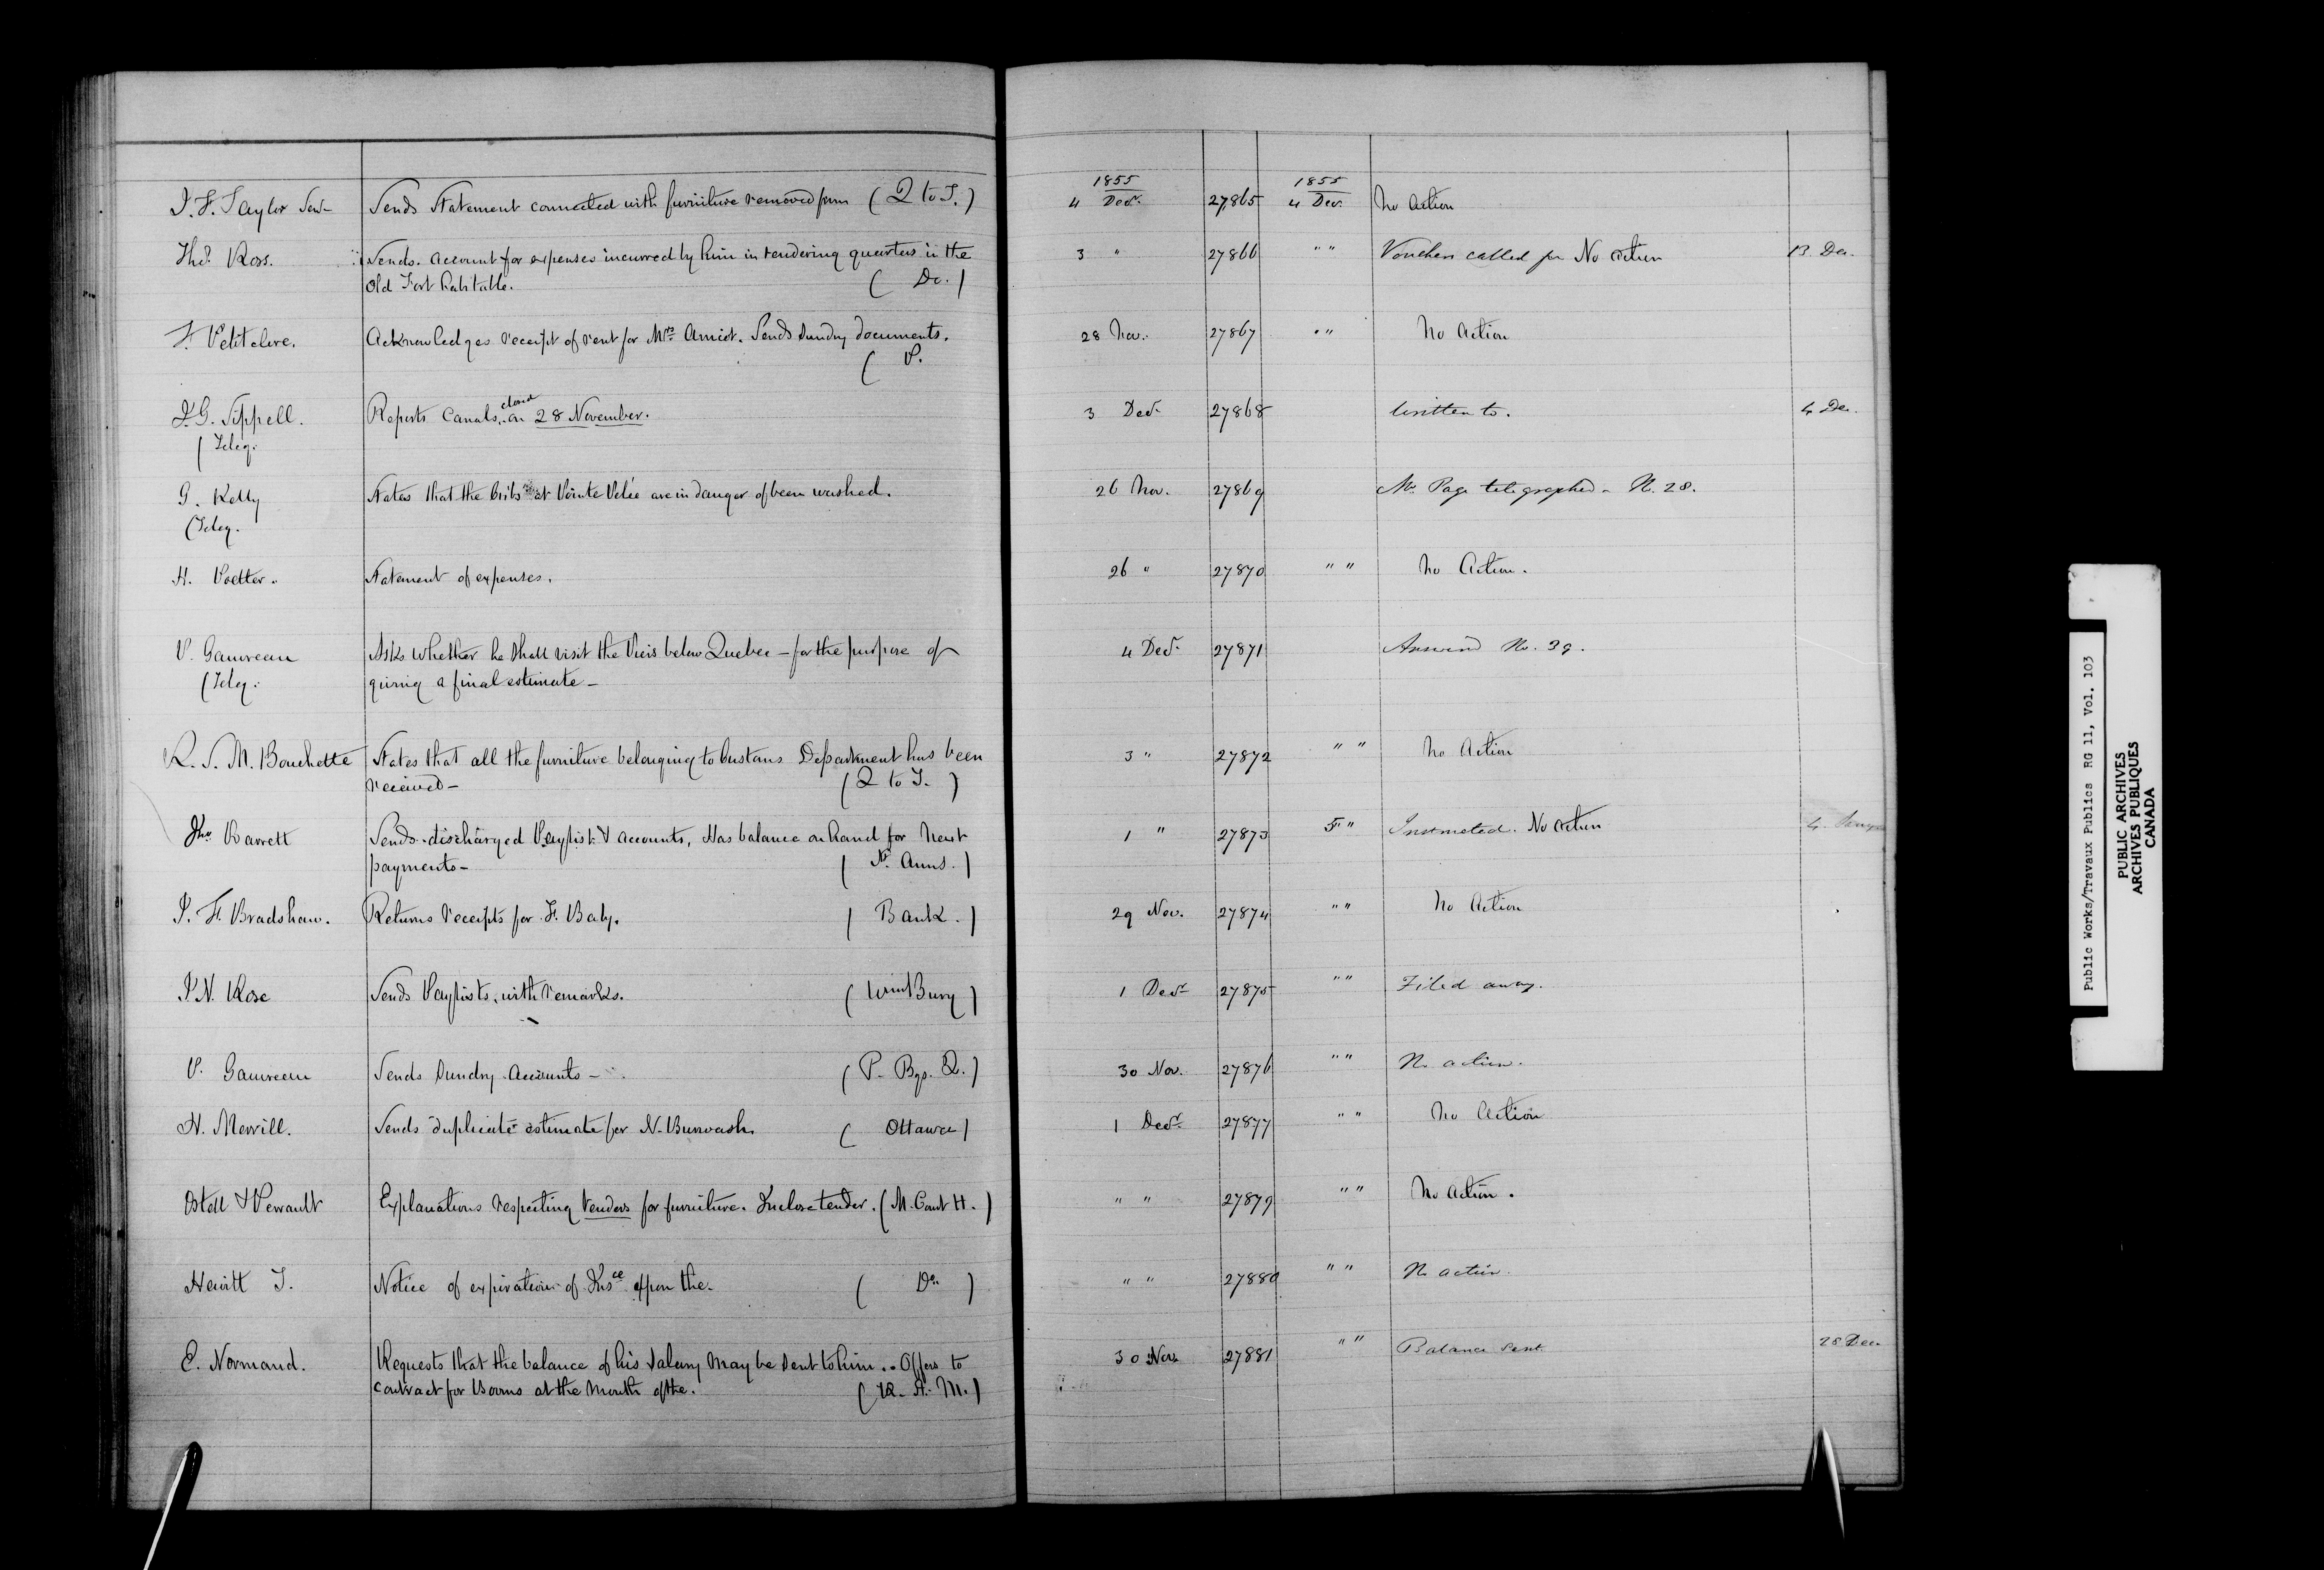 J. F. Taylor Senr Sends Statement connected with furniture removed from ( Q to T. ) 4 1855 Decr. 27865 1855 4 Dec. No Action
Thos. Ross. Sends account for expenses incurred by him in rendering quarters in the 3 " 27866 " " Vouchers called for No action 13. Dec.
Old Fort habitable. ( Do. )
F. Petitclerc. Acknowledges receipt of rent for Mrs. Amiot. Sends Sundry documents. 28 Nov. 27867 " " No Action
( P.
J. G. Sippell. Reports Canals closed on 28 November. 3 Decr 27868 Written to. 4 Dec.
( Teleg.
G. Kelly States that the Cribs at Pointe Pelée are in danger of been washed. 26 Nov. 27869 Mr. Page telegraphed - N. 28.
( Teleg.
H. Voetter. Statement of expenses. 26 " 27870 " " No Action.
P. Gauvreau Asks whether he shall visit the Piers below Quebec - for the purpose of 4 Decr. 27871 Answered No. 39.
( Teleg. giving a final estimate -
R. S. M. Bouchette States that all the furniture belonging to Customs Department has been 3 " 27872 " " No Action
received - ( Q to T. )
Jno. Barrett Sends discharged Paylist & accounts, Has balance on hand for next 1 " 27873 5 " Instructed. No action 4
payments - ( St. Anns. )
J. F. Bradshaw. Returns receipts for F. Baby. ( Bank. ) 29 Nov. 27874 " " No Action
J. N. Rose Sends Paylists, with remarks. ( Wmsburg ) 1 Decr 27875 " " Filed away.
P. Gauvreau Sends Sundry Accounts - ( P. Bgs. Q. ) 30 Nov. 27876 " " No action.
H. Merrill. Sends duplicate estimate for N. Burwash ( Ottawa ) 1 Decr. 27877 " " No Action
Ostell & Perrault Explanations respecting Tenders for furniture. Inclose tender. ( M. Court H. ) " " 27879 " " No Action.
Hewitt J. Notice of expiration of Insce. upon the. ( Do. ) " " 27880 " " No action.
E. Normand. Requests that the balance of his Salary may be sent to him. - Offers to 30 Nov. 27881 " " Balance sent. 28 Dec.
contract for Booms at the mouth of the. ( R. St. M. )
Public Works/Travaux Publics RG 11, Vol. 103
PUBLIC ARCHIVES
ARCHIVES PUBLIQUES
CANADA